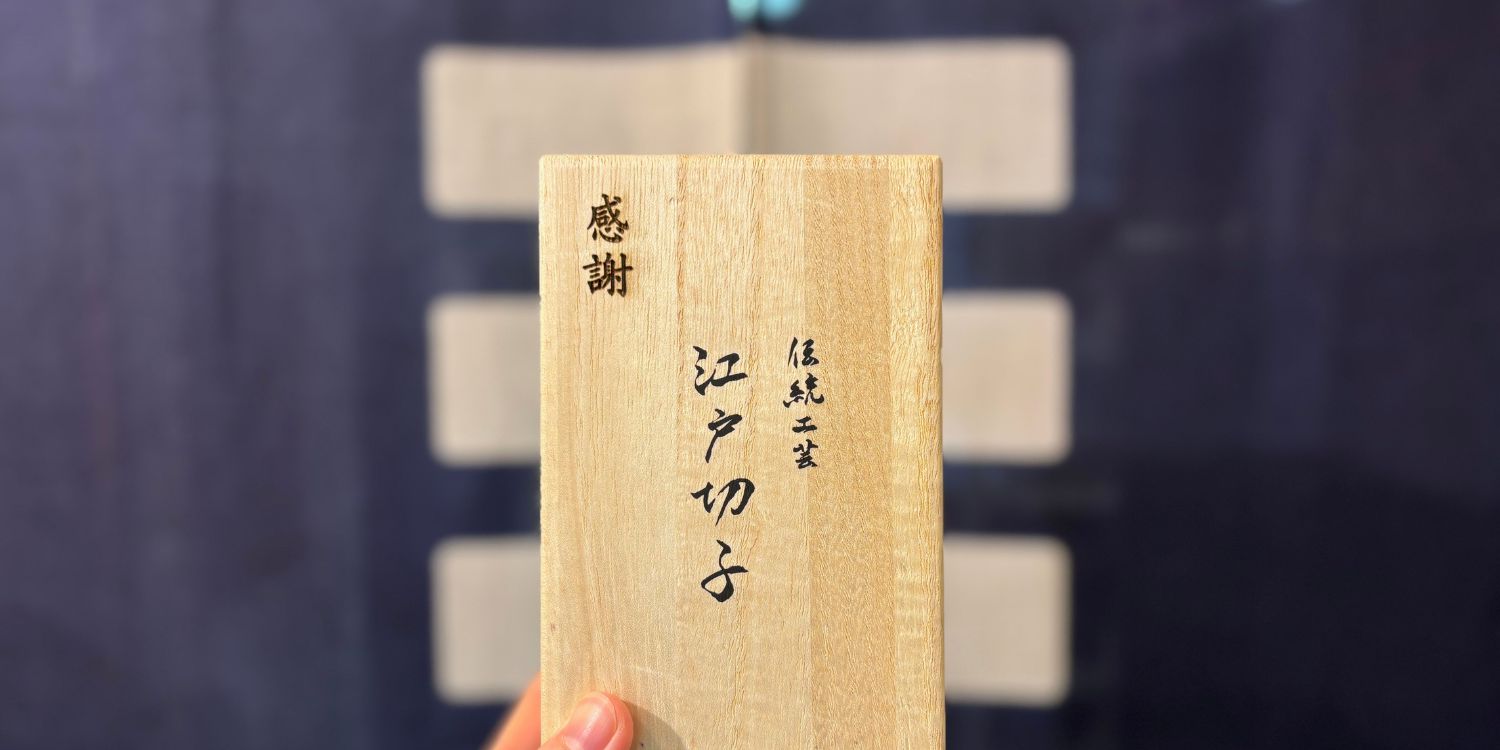 伝統工芸
江戸切子
感謝